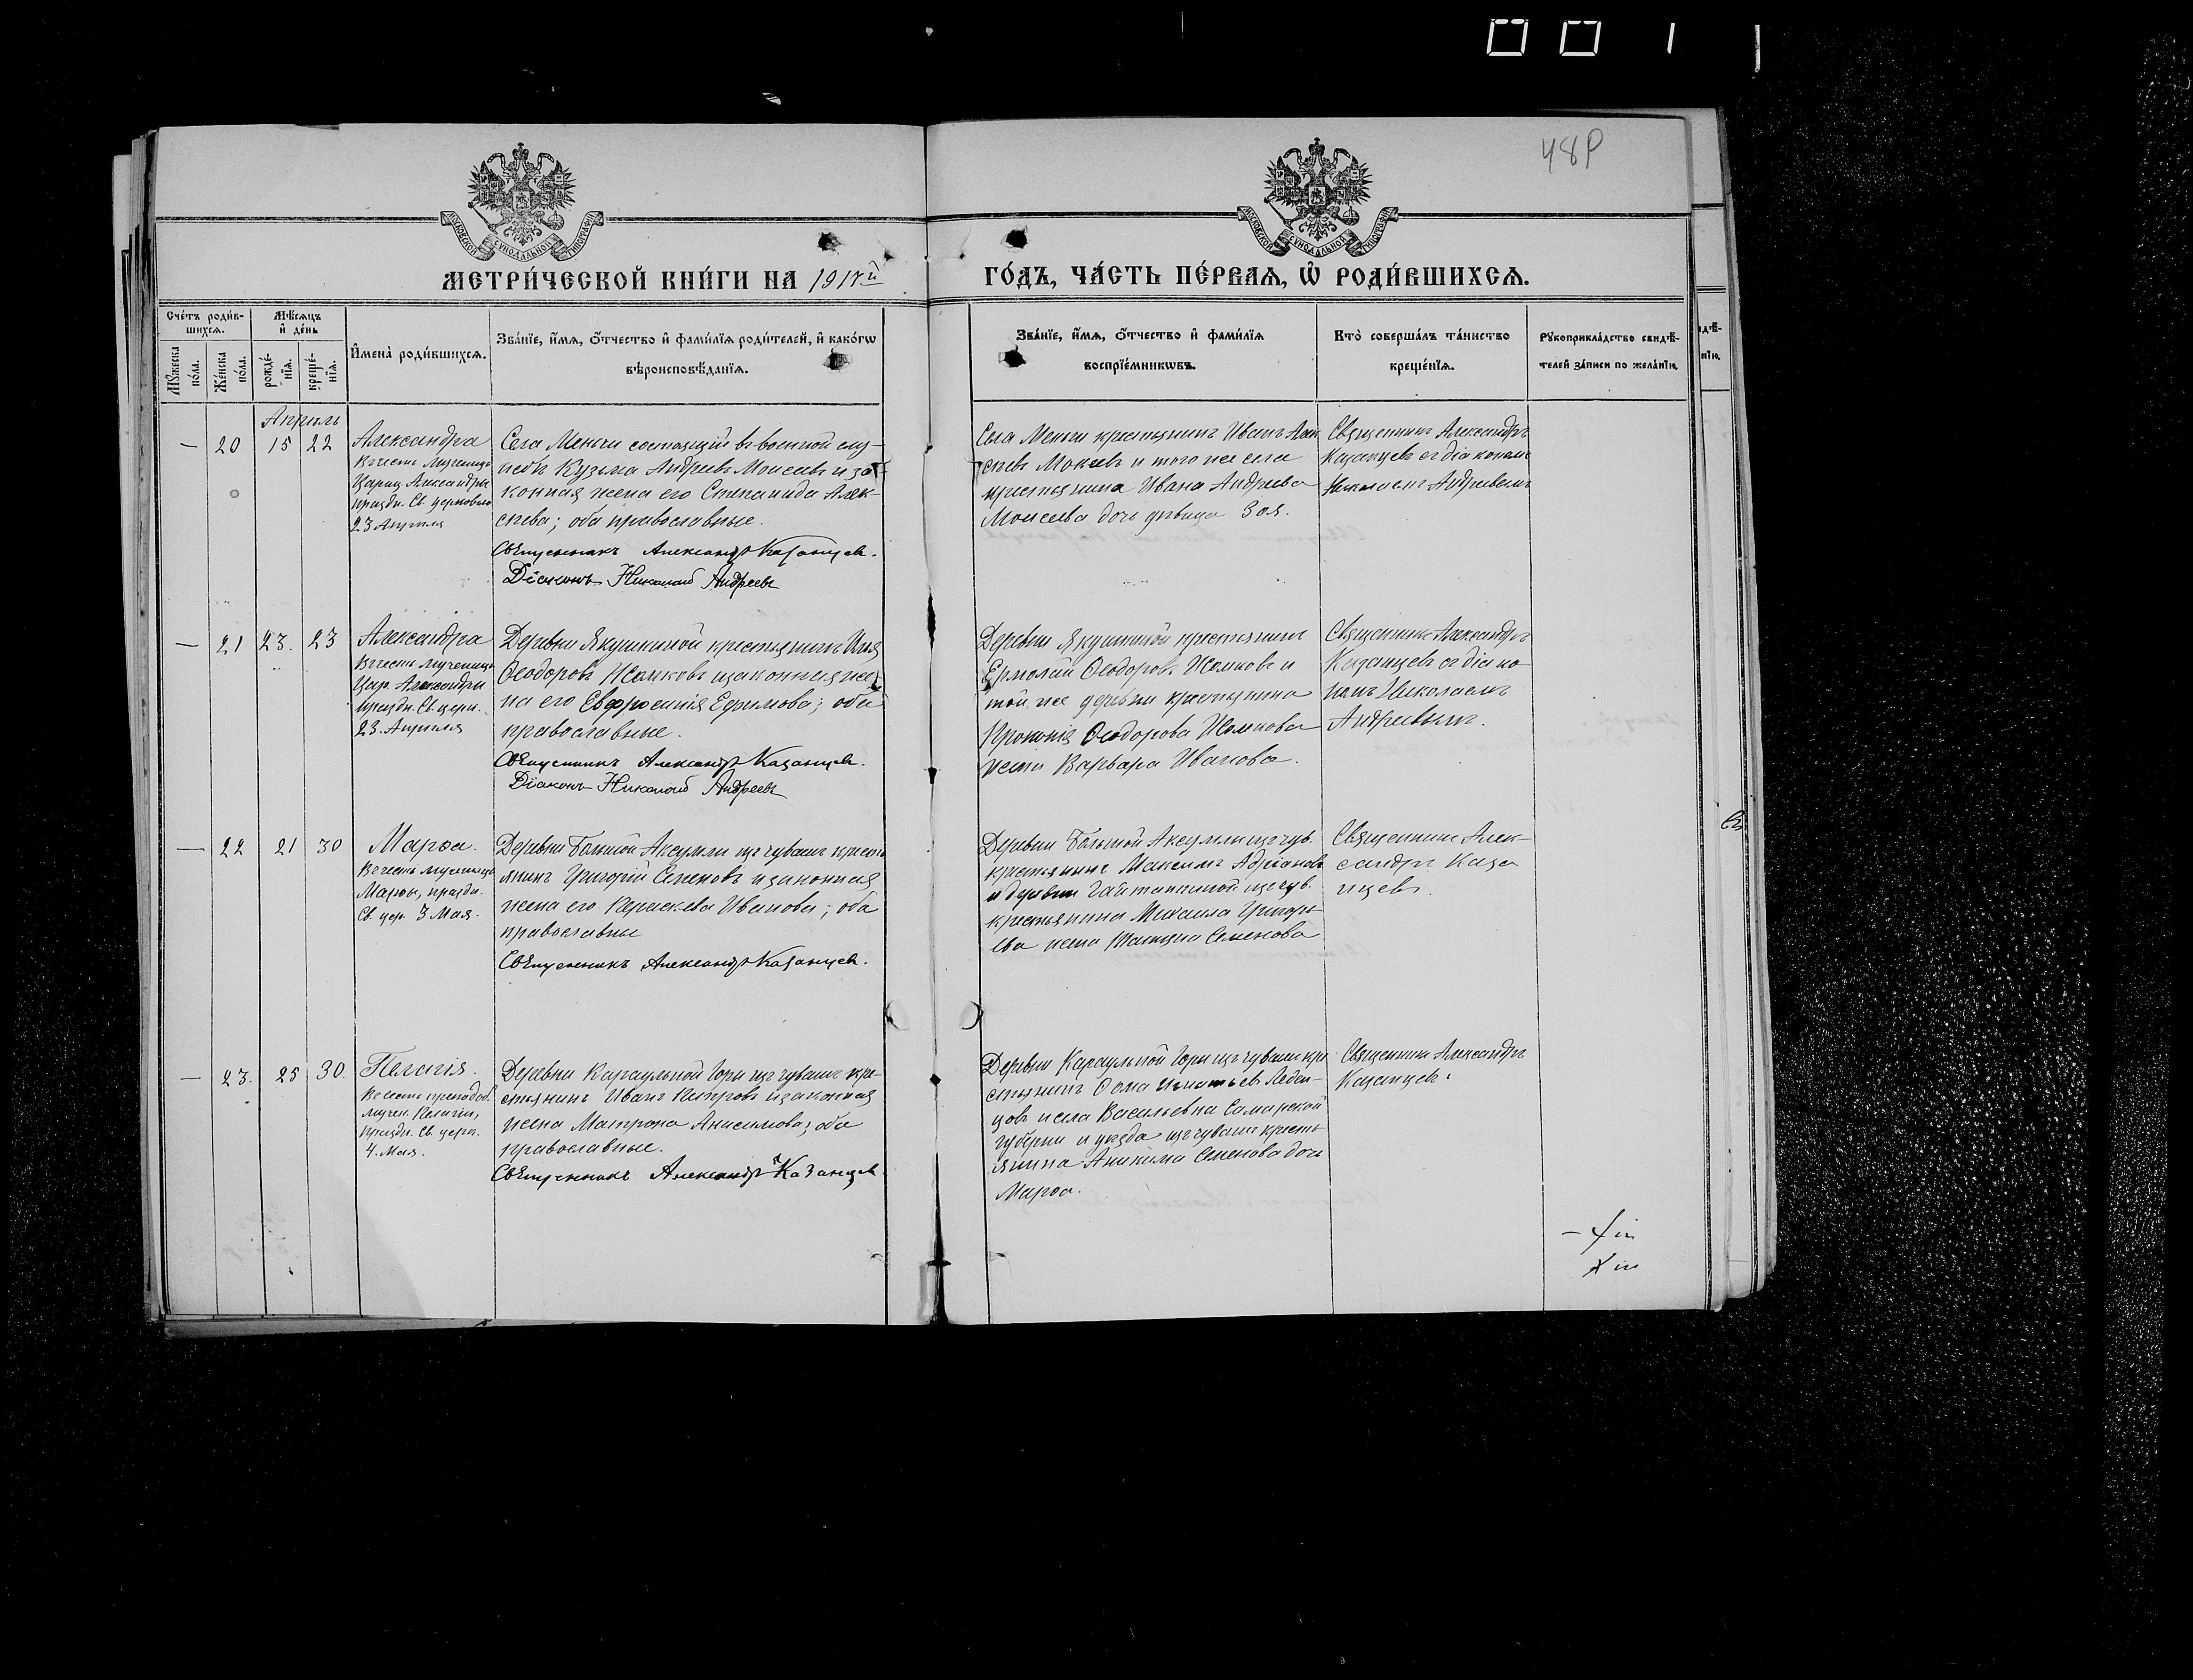 48Р
МОСКОВСКОЙ СУНОДАЛЬНОЙ ТИПОГРАФІИ
МОСКОВСКОЙ СУНОДАЛЬНОЙ ТИПОГРАФІИ
МЕТРИ́ЧЕСКОЙ КНИ́ГИ НА 1917й
ГО́ДЪ, ЧА́СТЬ ПЕ́РВАѦ, Ѡ҆ РОДИ́ВШИХСѦ.
Сче́тъ роди́в-
шихсѧ.
Мꙋ́жеска по́ла.
Же́нска по́ла.
Мѣ́сѧцъ
и҆ де́нь
рожде́-нїѧ.
креще́-нїѧ.
И҆мена̀ роди́вшихсѧ.
Зва́нїе, и҆́мѧ, ѻ҆́тчество и҆ фами́лїѧ роди́телей, и҆ како́гѡ
вѣроисповѣ́данїѧ.
Зва́нїе, и҆́мѧ, ѻ҆́тчество и҆ фами́лїѧ
воспрїе́мникѡвъ.
Кто̀ соверша́лъ та́инство
креще́нїѧ.
Рꙋкоприкла́дство свидѣ́-
телей за́писи по жела́нїю.
Апрель
— 20 15 22
Александра
Въ честь мученицы
Цариц. Александры
праздн. Св церковью
23 Апреля
Села Меньчи состоящій въ военной слу-
жбѣ Кузьма Андреевъ Моисеевъ и за-
конная жена его Степанида Алек-
сѣева; оба православные.
Священникъ Александръ Казанцев.
Діаконъ Николай Андреевъ
Села Меньчи крестьянинъ Иванъ Алек
сѣевъ Мокѣевъ и того же села
крестьянина Ивана Андреева
Моисеева дочь дѣвица Зоя.
Священникъ Александръ
Казанцевъ съ діакономъ
Николаемъ Андреевымъ
— 21 23. 23
Александра
Въ честь мученицы
Цар. Александры
праздн. Св церк.
23. Апреля
Деревни Якушкиной крестьянинъ Илья
Ѳеодоровъ и законная же-
на его Евфросинія Ефимова; оба
православные.
Священникъ Александръ Казанцев.
Діаконъ Николай Андреевъ
Деревни Якушкиной крестьянинъ
Ермолай Ѳеодоровъ и
той же деревни крестьянина
Прокопія Ѳеодорова
жена Варвара Иванова.
Священникъ Александръ
Казанцевъ съ діако-
номъ Николаемъ
Андреевымъ.
— 22 21 30
Марѳа.
Въ честь мученицы
Мавры, праздн.
Св. цер. 3 Мая.
Деревни Большой Аксумлы изъ чувашъ кресть
янинъ Григорій Семеновъ и законная
жена его Параскева Иванова; оба
православные
Священникъ Александръ Казанцев.
Деревни Большой Аксумлы изъ чув.
крестьянинъ Максимъ Адріановъ
и деревни изъ чув.
крестьянина Михаила Григорь
ева жена Татіана Семенова
Священникъ Алек-
сандръ Каза
нцевъ.
— 23. 25 30.
Пелагія.
Въ честь преподоб.
мучен. Пелагіи,
праздн. Св. церк.
4. Мая.
Деревни Караульной Горы изъ чувашъ кре-
стьянинъ Иванъ Петровъ и законная
жена Матрона Анисимова; оба
православные.
Священникъ Александръ Казанцев.
Деревни Караульной Горы изъ чувашъ кре
стьянинъ Ѳома Игнатьев Леден-
цовъ и села Васильевки Самарской
губерни и уѣзда изъ чувашъ кресть
янина Аникима Семенова дочь
Марѳа.
Священникъ Александръ
Казанцевъ.